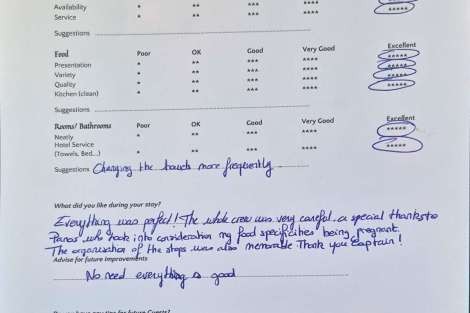 Availability * ** *** **** *****
Service * ** *** **** *****
Suggestions
Food Poor OK Good Very Good Excellent
Presentation * ** *** **** *****
Variety * ** *** **** *****
Quality * ** *** **** *****
Kitchen (clean) * ** *** **** *****
Suggestions
Rooms/ Bathrooms Poor OK Good Very Good Excellent
Neatly * ** *** **** *****
Hotel Service
(Towels, Bed...) * ** *** **** *****
Suggestions Changing the towels more frequently
What did you like during your stay?
Everything was perfect! The whole crew was very careful. a special thanks to
Panos who took into consideration my food specificities being pregnant.
The organisation of the stops was also memorable Thank you Captain!
Advise for future improvements
No need everything is good